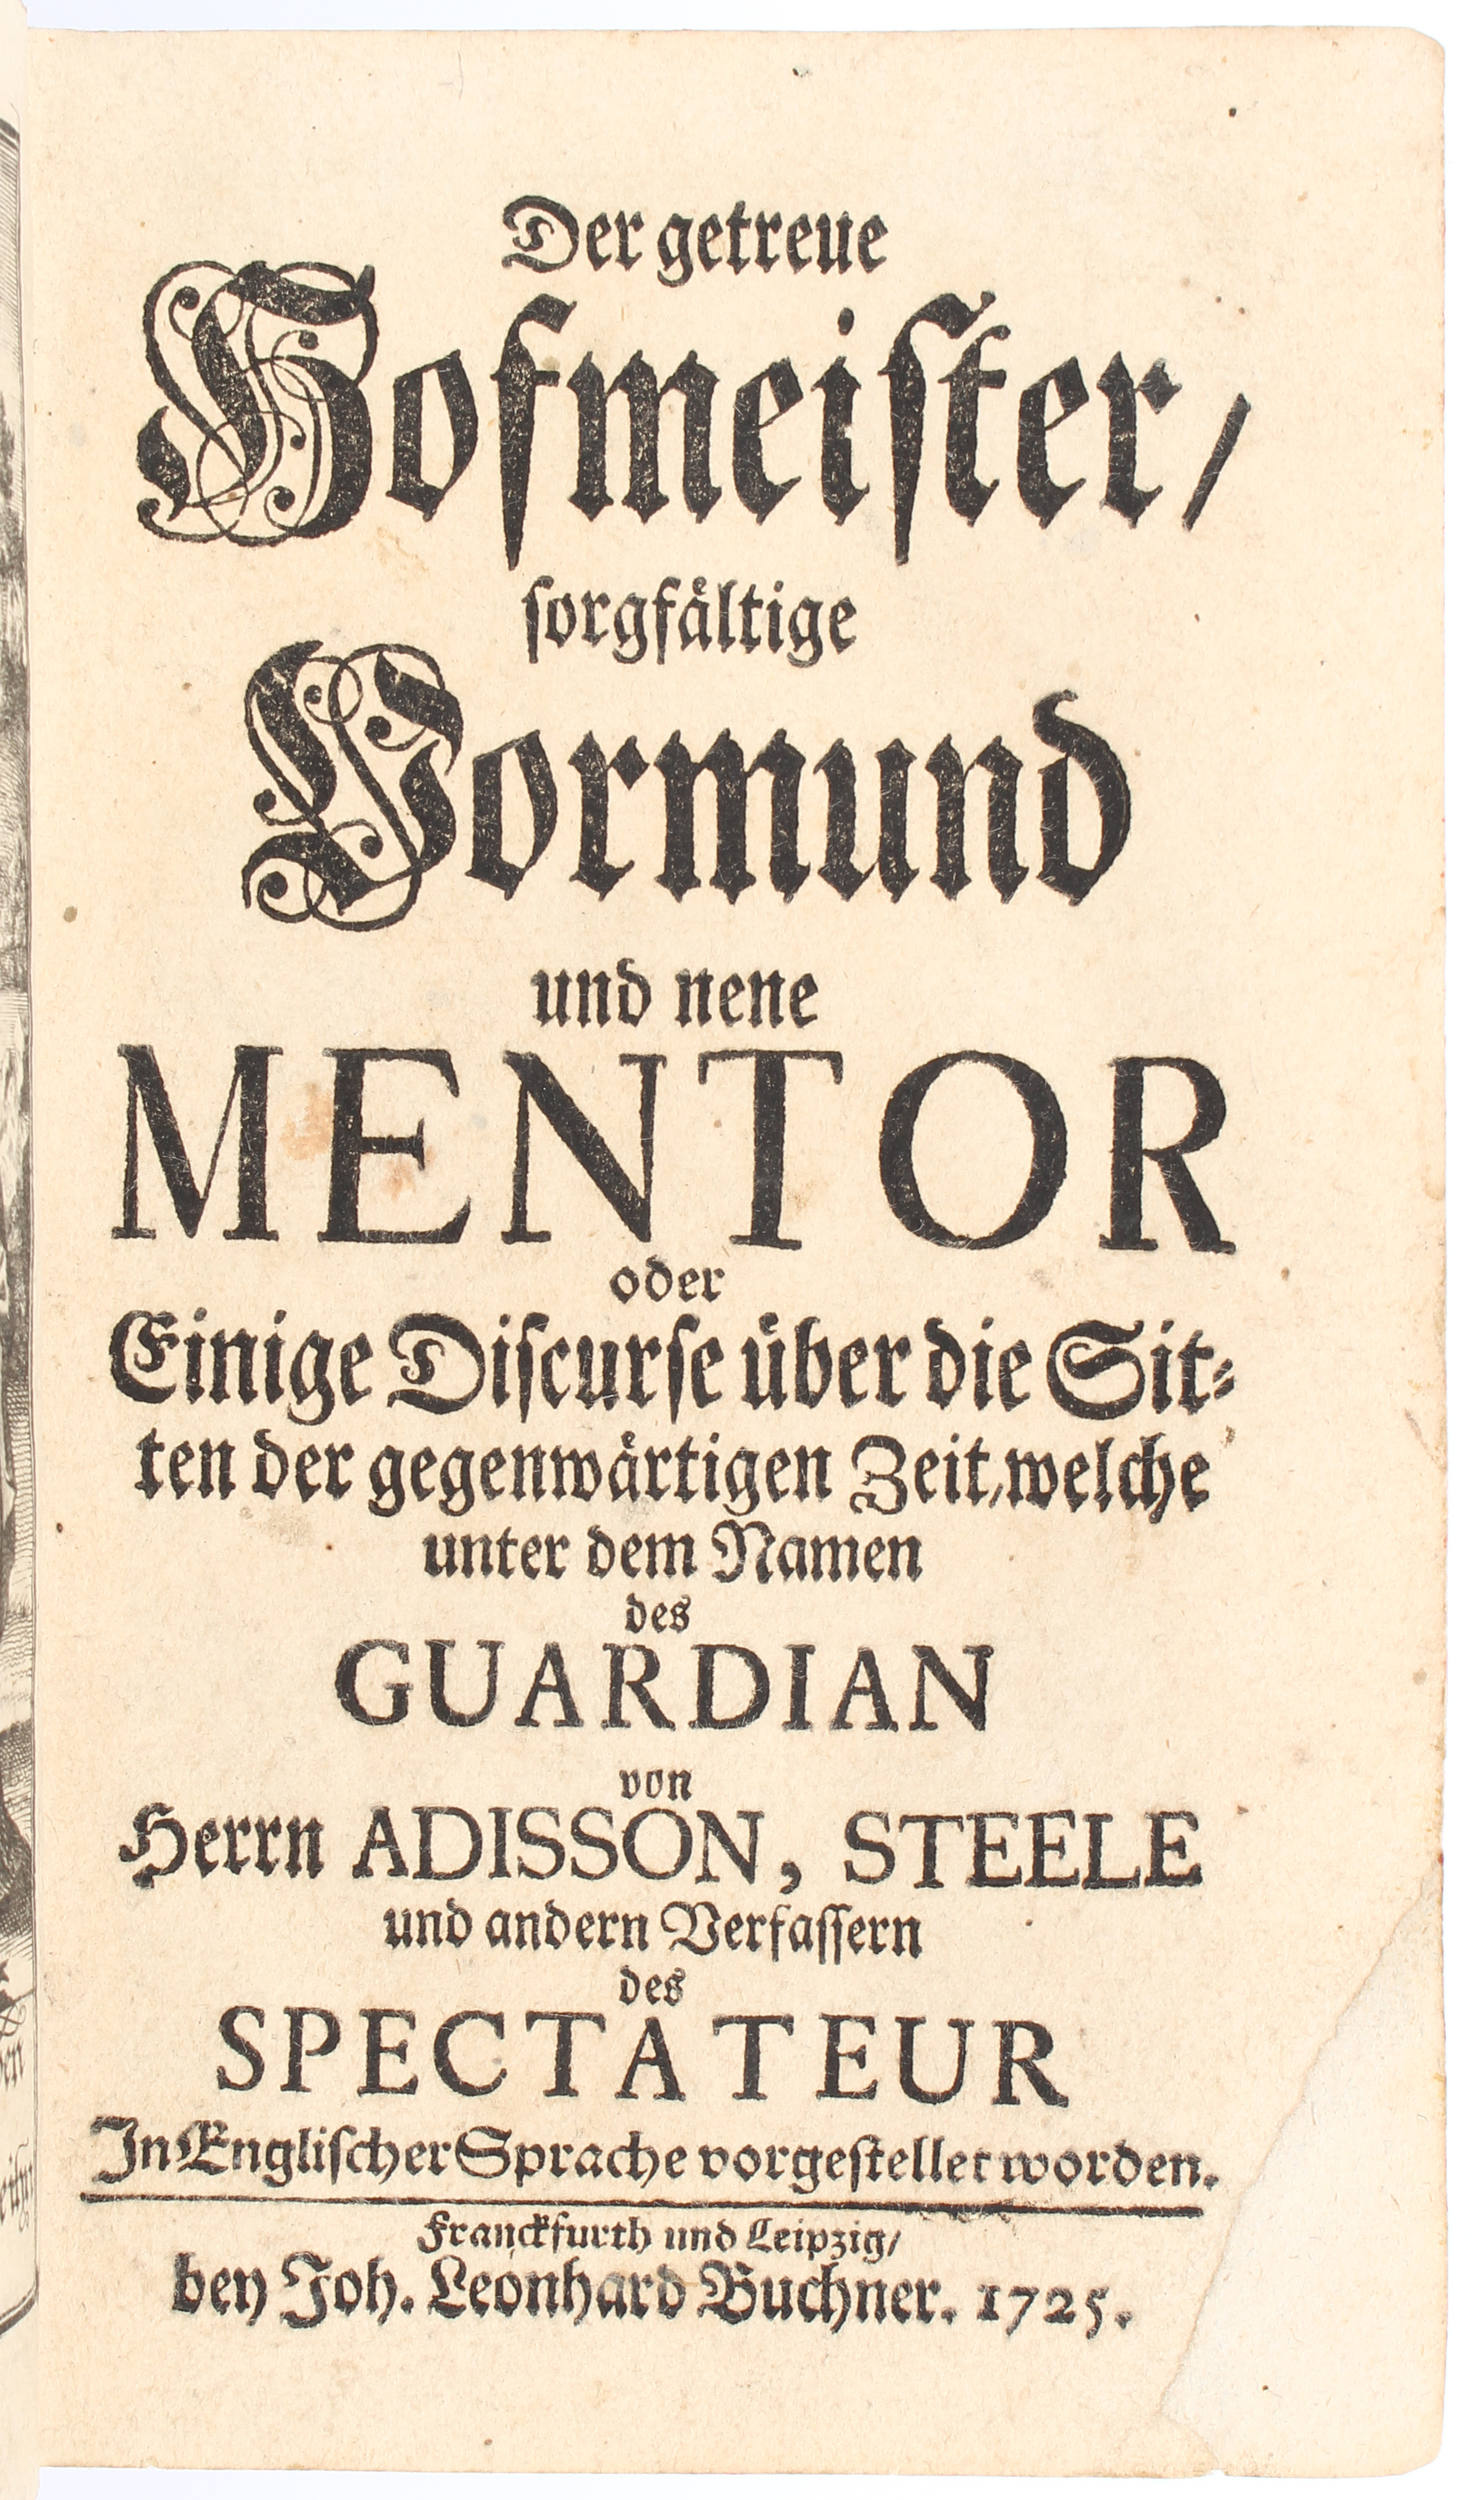 Der getreue
Hofmeister/
sorgfältige
Vormund
und nene
MENTOR
oder
Einige Discurse über die Sit-
ten der gegenwärtigen Zeit, welche
unter dem Namen
des
GUARDIAN
von
Herrn ADISSON, STEELE
und andern Verfassern
des
SPECTATEUR
In Englischer Sprache vorgestellet worden.
Franckfurth und Leipzig/
bey Joh. Leonhard Buchner. 1725.